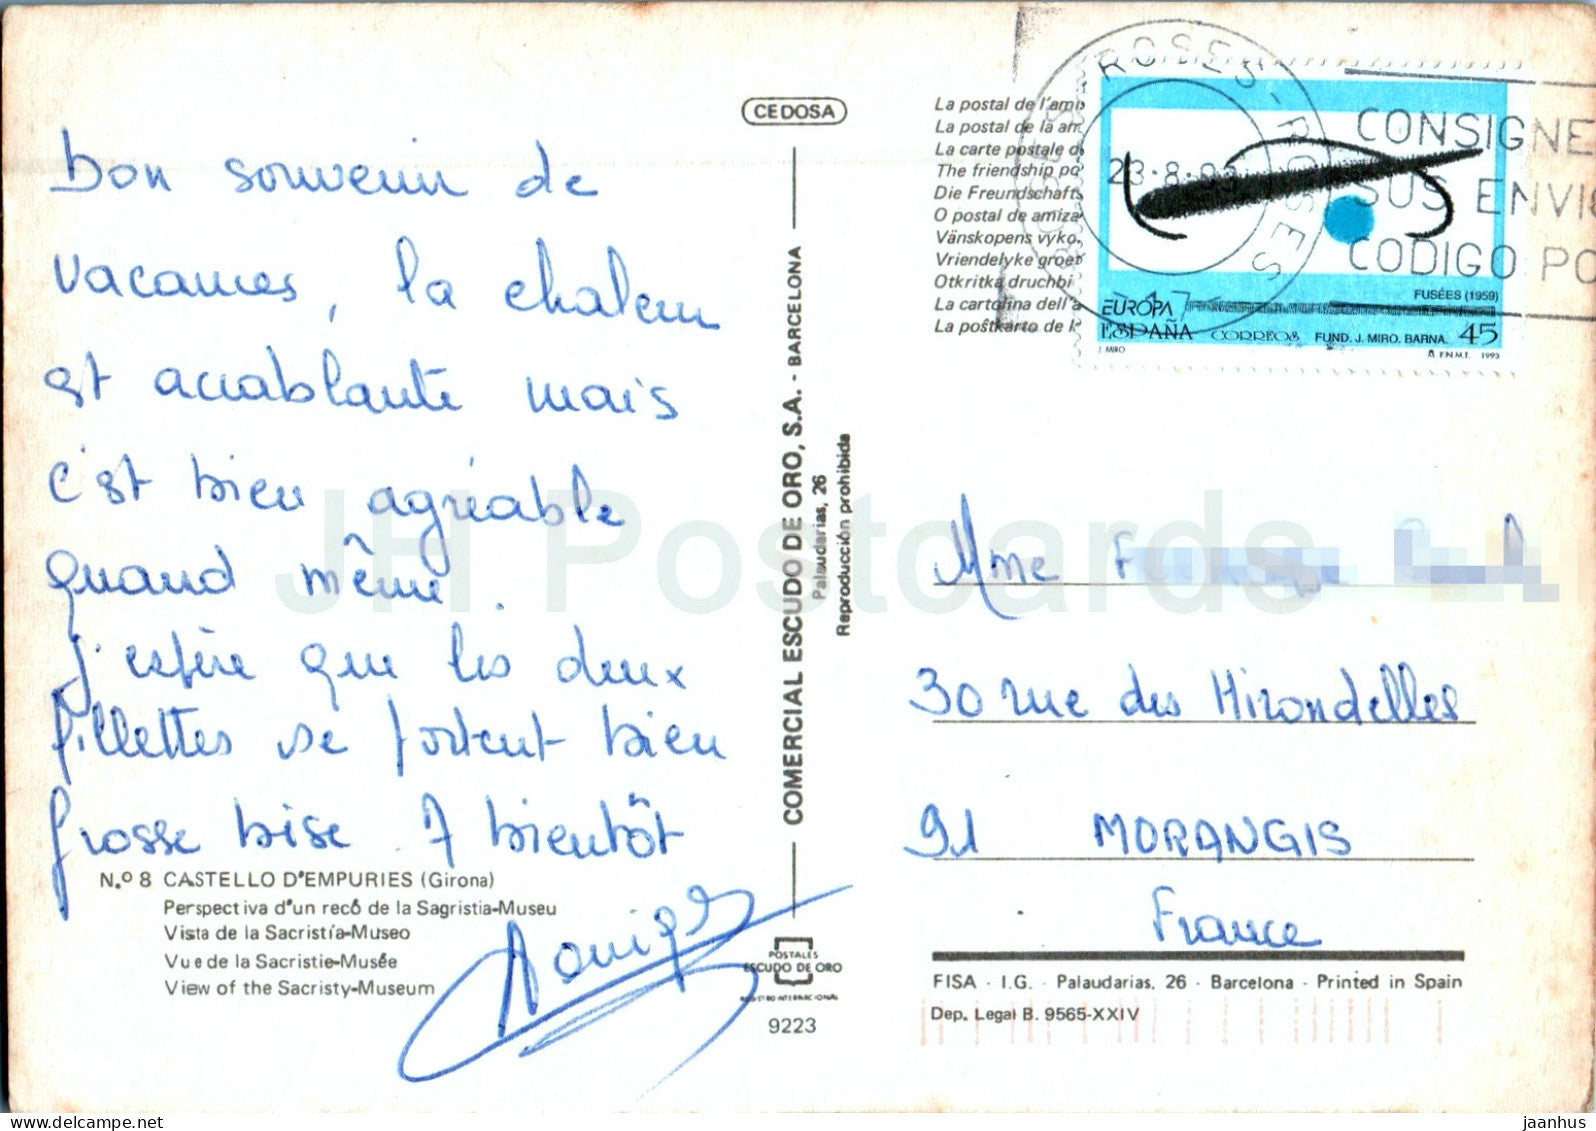 CEDOSA
Bon souvenir de
vacances, la chaleur
est accablante mais
c'est bien agréable
quand même.
J'espère que les deux
fillettes se portent bien
Grosse bise. A bientôt
N.º 8 CASTELLO D'EMPURIES (Girona)
Perspectiva d'un recó de la Sagristia-Museu
Vista de la Sacristía-Museo
Vue de la Sacristie-Musée
View of the Sacristy-Museum
COMERCIAL ESCUDO DE ORO, S.A. - BARCELONA
Palaudarias, 26
Reproducción prohibida
POSTALES
ESCUDO DE ORO
REGISTRO INTERNACIONAL
9223
La postal de l'ami
La postal de la am
La carte postale d
The friendship po
Die Freundschafts
O postal de amiza
Vänskopens vyko
Vriendelyke groet
Otkritka druchbi
La cartolina dell'a
La poŝtkarto de
ROSES - ROSES
23.8.93
CONSIGNE
SUS ENVIO
CODIGO PO
FUSÉES (1959)
EUROPA
ESPAÑA CORREOS FUND. J. MIRO. BARNA. 45
J. MIRO F.N.M.T. 1993
Mme
30 rue des Hirondelles
91 MORANGIS
France
FISA - I.G. - Palaudarias, 26 - Barcelona - Printed in Spain
Dep. Legal B. 9565-XXIV
JH Postcards
www.delcampe.net
jaanhus